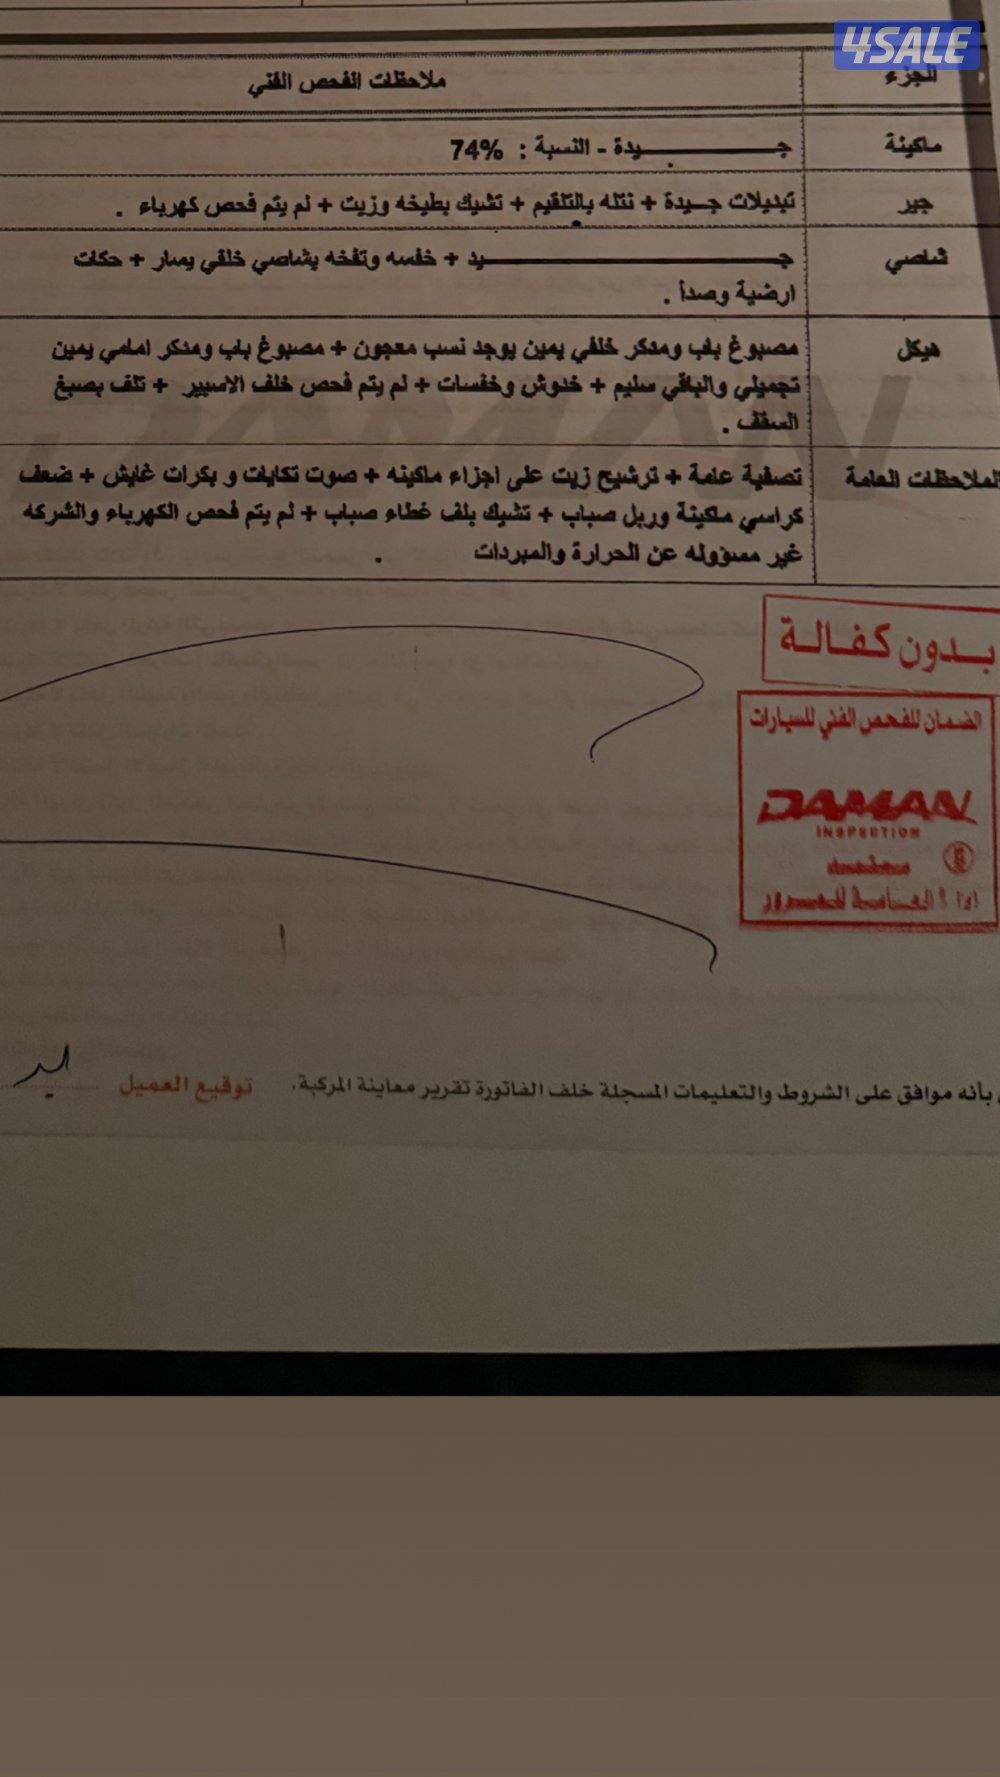 4SALE
الجزء ملاحظات الفحص الفني
ماكينة جـــيدة - النسبة : 74%
جير تبديلات جـيدة + نتله بالتلقيم + تشيك بطيخه وزيت + لم يتم فحص كهرباء .
شاصي جـــيد + خفسه وتفخه بشاصي خلفي يسار + حكات
ارضية وصدأ .
هيكل مصبوغ باب ومدكر خلفي يمين يوجد نسب معجون + مصبوغ باب ومدكر امامي يمين
تجميلي والباقي سليم + خدوش وخفسات + لم يتم فحص خلف الاسبير + تلف بصبغ
السقف .
الملاحظات العامة تصفية عامة + ترشيح زيت على اجزاء ماكينه + صوت تكايات و بكرات غايش + ضعف
كراسي ماكينة وربل صباب + تشيك بلف غطاء صباب + لم يتم فحص الكهرباء والشركه
غير مسؤوله عن الحرارة والمبردات .
بـدون كفـالـة
الضمان للفحص الفني للسيارات
DAMAN
INSPECTION
معتمد
العامـة للمـرور
بأنه موافق على الشروط والتعليمات المسجلة خلف الفاتورة تقرير معاينة المركبة. توقيع العميل